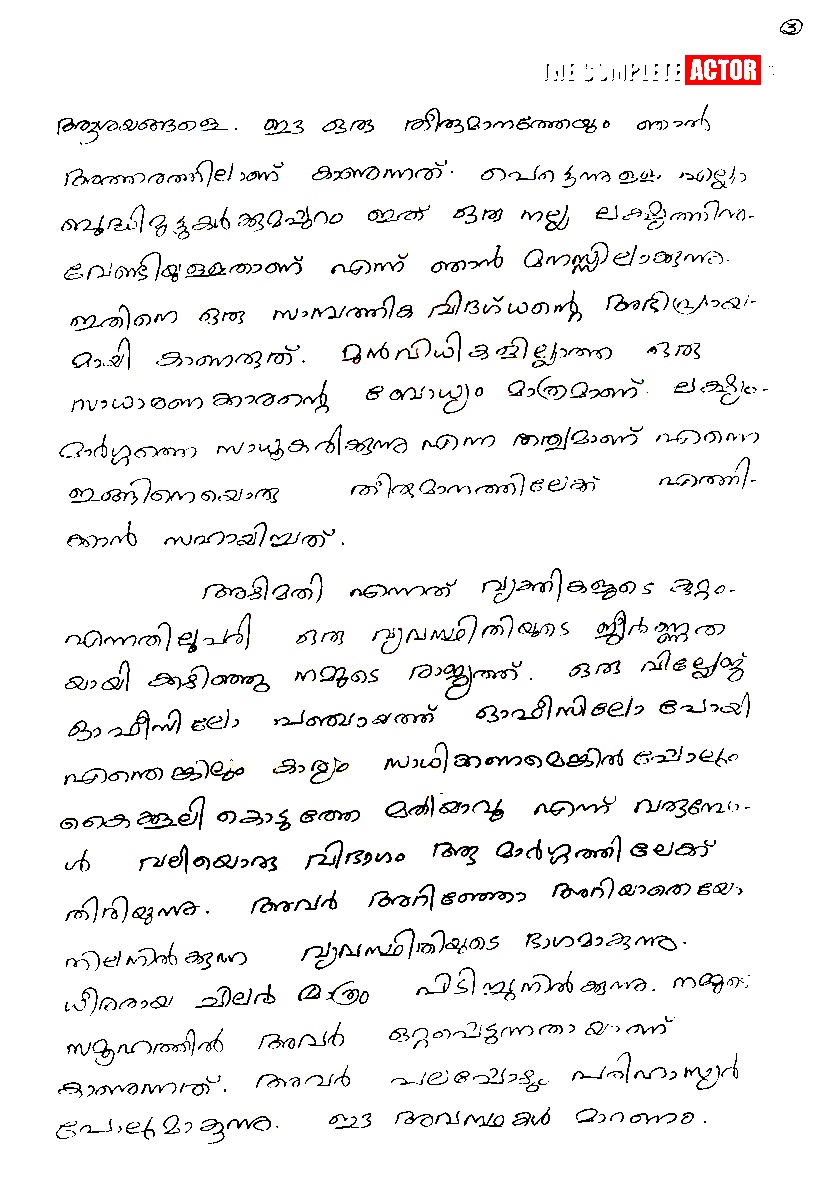 3
THE COMPLETE ACTOR
ആശയങ്ങളെ. ഈ ഒരു തീരുമാനത്തേയും ഞാൻ
അത്തരത്തിലാണ് കാണുന്നത്. പെട്ടെന്നുള്ള എല്ലാ
ബുദ്ധിമുട്ടുകൾക്കുമപ്പുറം ഇത് ഒരു നല്ല ലക്ഷ്യത്തിനു-
വേണ്ടിയുള്ളതാണ് എന്ന് ഞാൻ മനസ്സിലാക്കുന്നു.
ഇതിനെ ഒരു സാമ്പത്തിക വിദഗ്ധന്റെ അഭിപ്രായ-
മായി കാണരുത്. മുൻവിധികളില്ലാത്ത ഒരു
സാധാരണക്കാരന്റെ ബോധ്യം മാത്രമാണ്. ലക്ഷ്യം-
മാർഗ്ഗത്തെ സാധൂകരിക്കുന്നു എന്ന തത്വമാണ് എന്നെ
ഇങ്ങിനെയൊരു തീരുമാനത്തിലേക്ക് എത്തി-
ക്കാൻ സഹായിച്ചത്.
അഴിമതി എന്നത് വ്യക്തികളുടെ കുറ്റം-
എന്നതിലുപരി ഒരു വ്യവസ്ഥിതിയുടെ ജീർണ്ണത
യായി കഴിഞ്ഞു നമ്മുടെ രാജ്യത്ത്. ഒരു വില്ലേജ്
ഓഫീസിലോ പഞ്ചായത്ത് ഓഫീസിലോ പോയി
എന്തെങ്കിലും കാര്യം സാധിക്കണമെങ്കിൽ പോലും
കൈക്കൂലി കൊടുത്തേ മതിയാവൂ എന്ന് വരുമ്പോ-
ൾ വലിയൊരു വിഭാഗം ആ മാർഗ്ഗത്തിലേക്ക്
തിരിയുന്നു. അവർ അറിഞ്ഞോ അറിയാതെയോ
നിലനിൽക്കുന്ന വ്യവസ്ഥിതിയുടെ ഭാഗമാകുന്നു.
ധീരരായ ചിലർ മാത്രം പിടിച്ചുനിൽക്കുന്നു. നമ്മുടെ
സമൂഹത്തിൽ അവർ ഒറ്റപ്പെടുന്നതായാണ്
കാണുന്നത്. അവർ പലപ്പോഴും പരിഹാസ്യർ
പോലുമാകുന്നു. ഈ അവസ്ഥകൾ മാറണം.